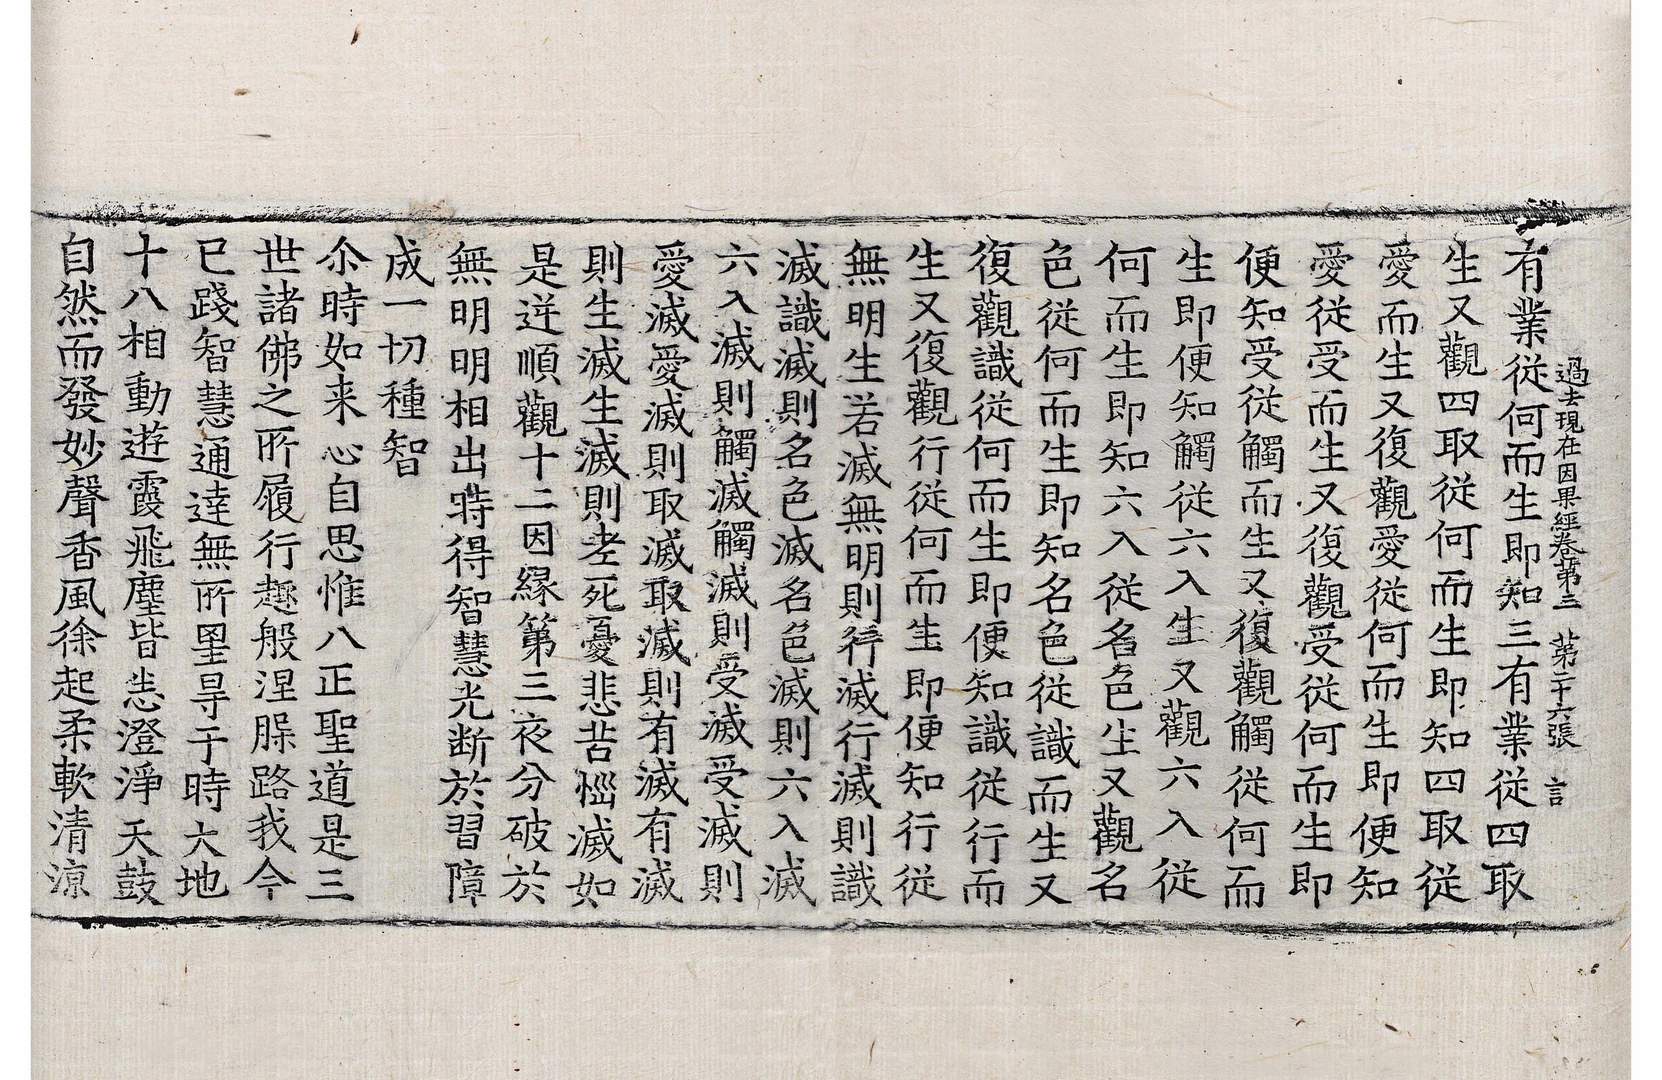 過去現在因果經卷第三 第二十六張 言
有業從何而生即知三有業從四取
生又觀四取從何而生即知四取從
愛而生又復觀愛從何而生即便知
愛從受而生又復觀受從何而生即
便知受從觸而生又復觀觸從何而
生即便知觸從六入生又觀六入從
何而生即知六入從名色生又觀名
色從何而生即知名色從識而生又
復觀識從何而生即便知識從行而
生又復觀行從何而生即便知行從
無明生若滅無明則行滅行滅則識
滅識滅則名色滅名色滅則六入滅
六入滅則觸滅觸滅則受滅受滅則
愛滅愛滅則取滅取滅則有滅有滅
則生滅生滅則老死憂悲苦惱滅如
是逆順觀十二因緣第三夜分破於
無明明相出時得智慧光断於習障
成一切種智
尒時如来心自思惟八正聖道是三
世諸佛之所履行趣般涅槃路我今
已踐智慧通達無所罣㝵于時大地
十八相動遊霞飛塵皆悉澄淨天鼓
自然而發妙聲香風徐起柔軟清凉